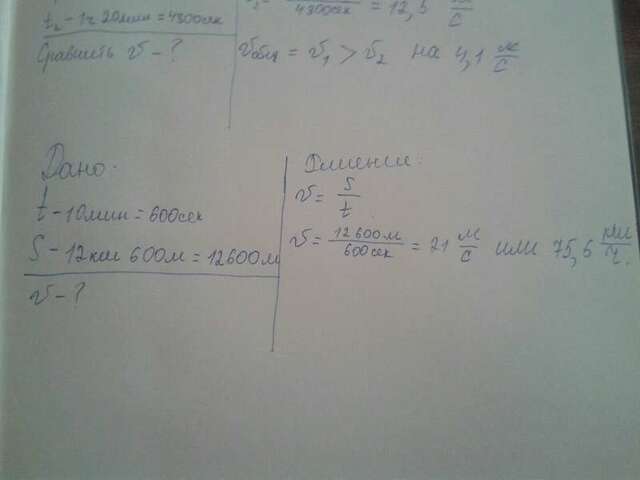 t₂ - 1ч 20мин = 4300сек
4300сек = 12,5 м/с
Сравнить v - ?
vобщ = v₁ > v₂ на 4,1 м/с
Дано:
t - 10мин = 600сек
S - 12км 600м = 12600м
v - ?
Решение:
v = S/t
v = 12600м/600сек = 21 м/с или 75,6 км/ч.